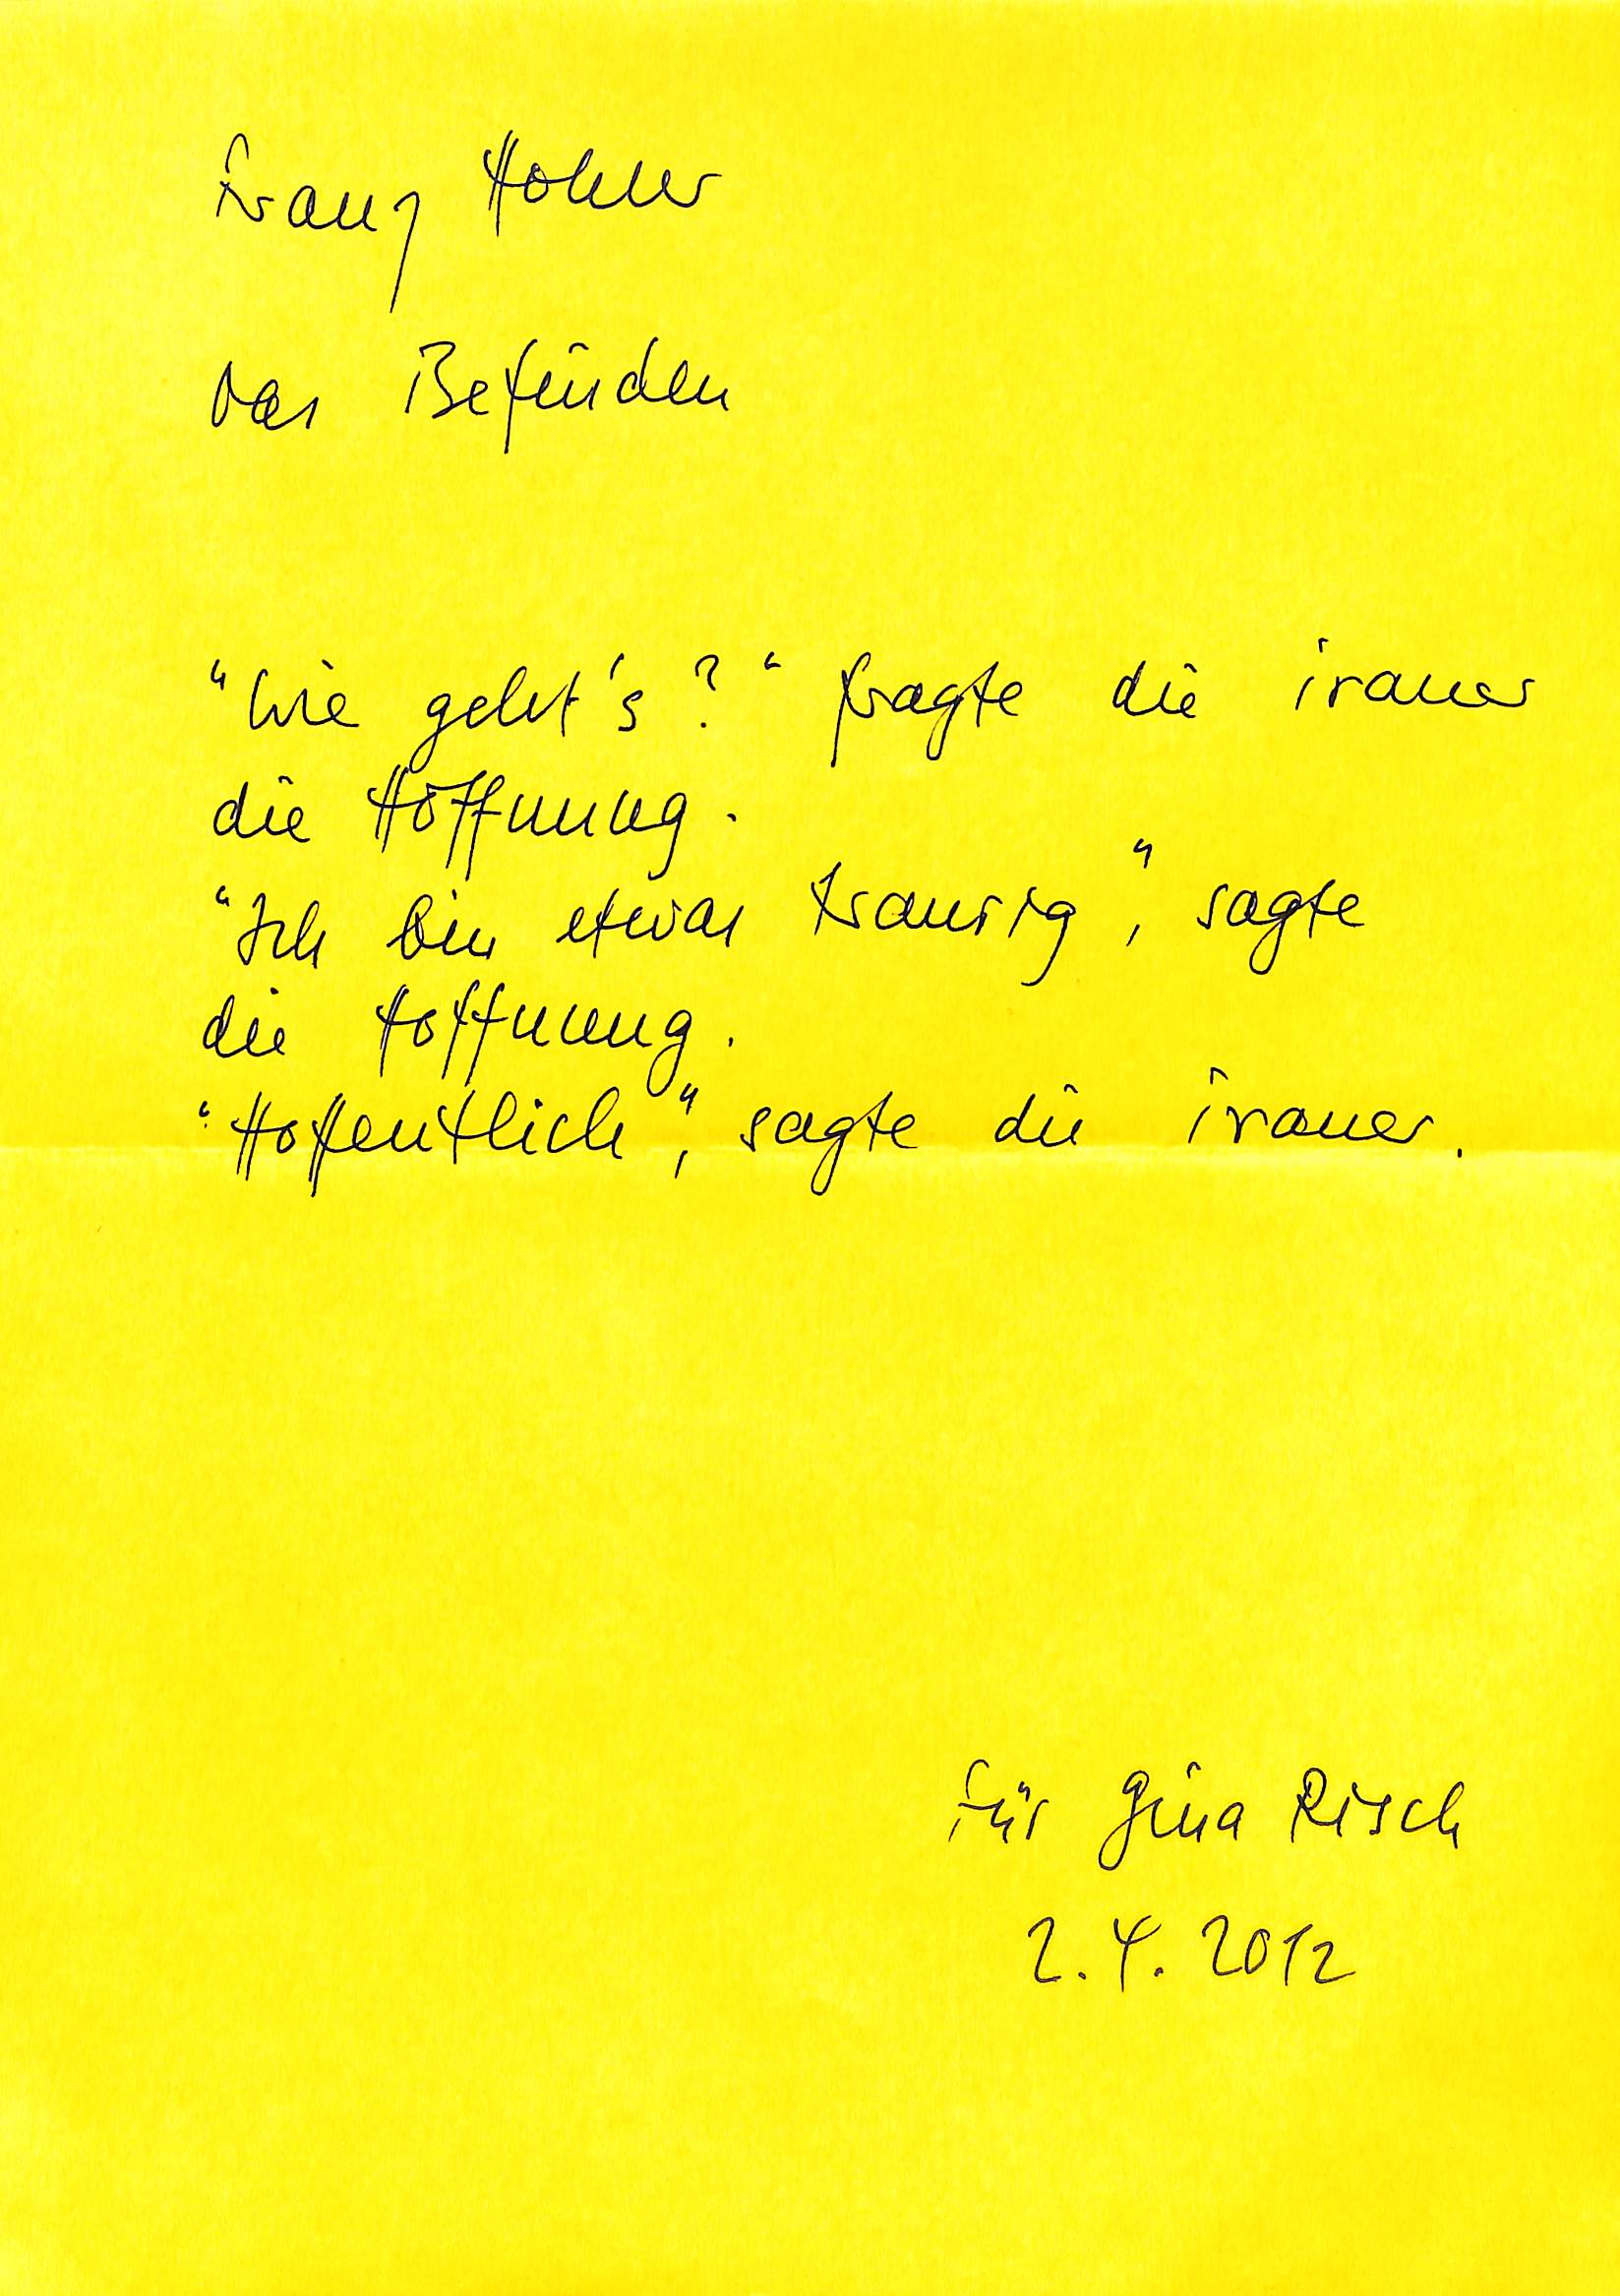 Franz Hohler
Das Befinden
"Wie geht's?" fragte die Trauer
die Hoffnung.
"Ich bin etwas traurig", sagte
die Hoffnung.
"Hoffentlich", sagte die Trauer.
Für Gina Risch
2.4.2012